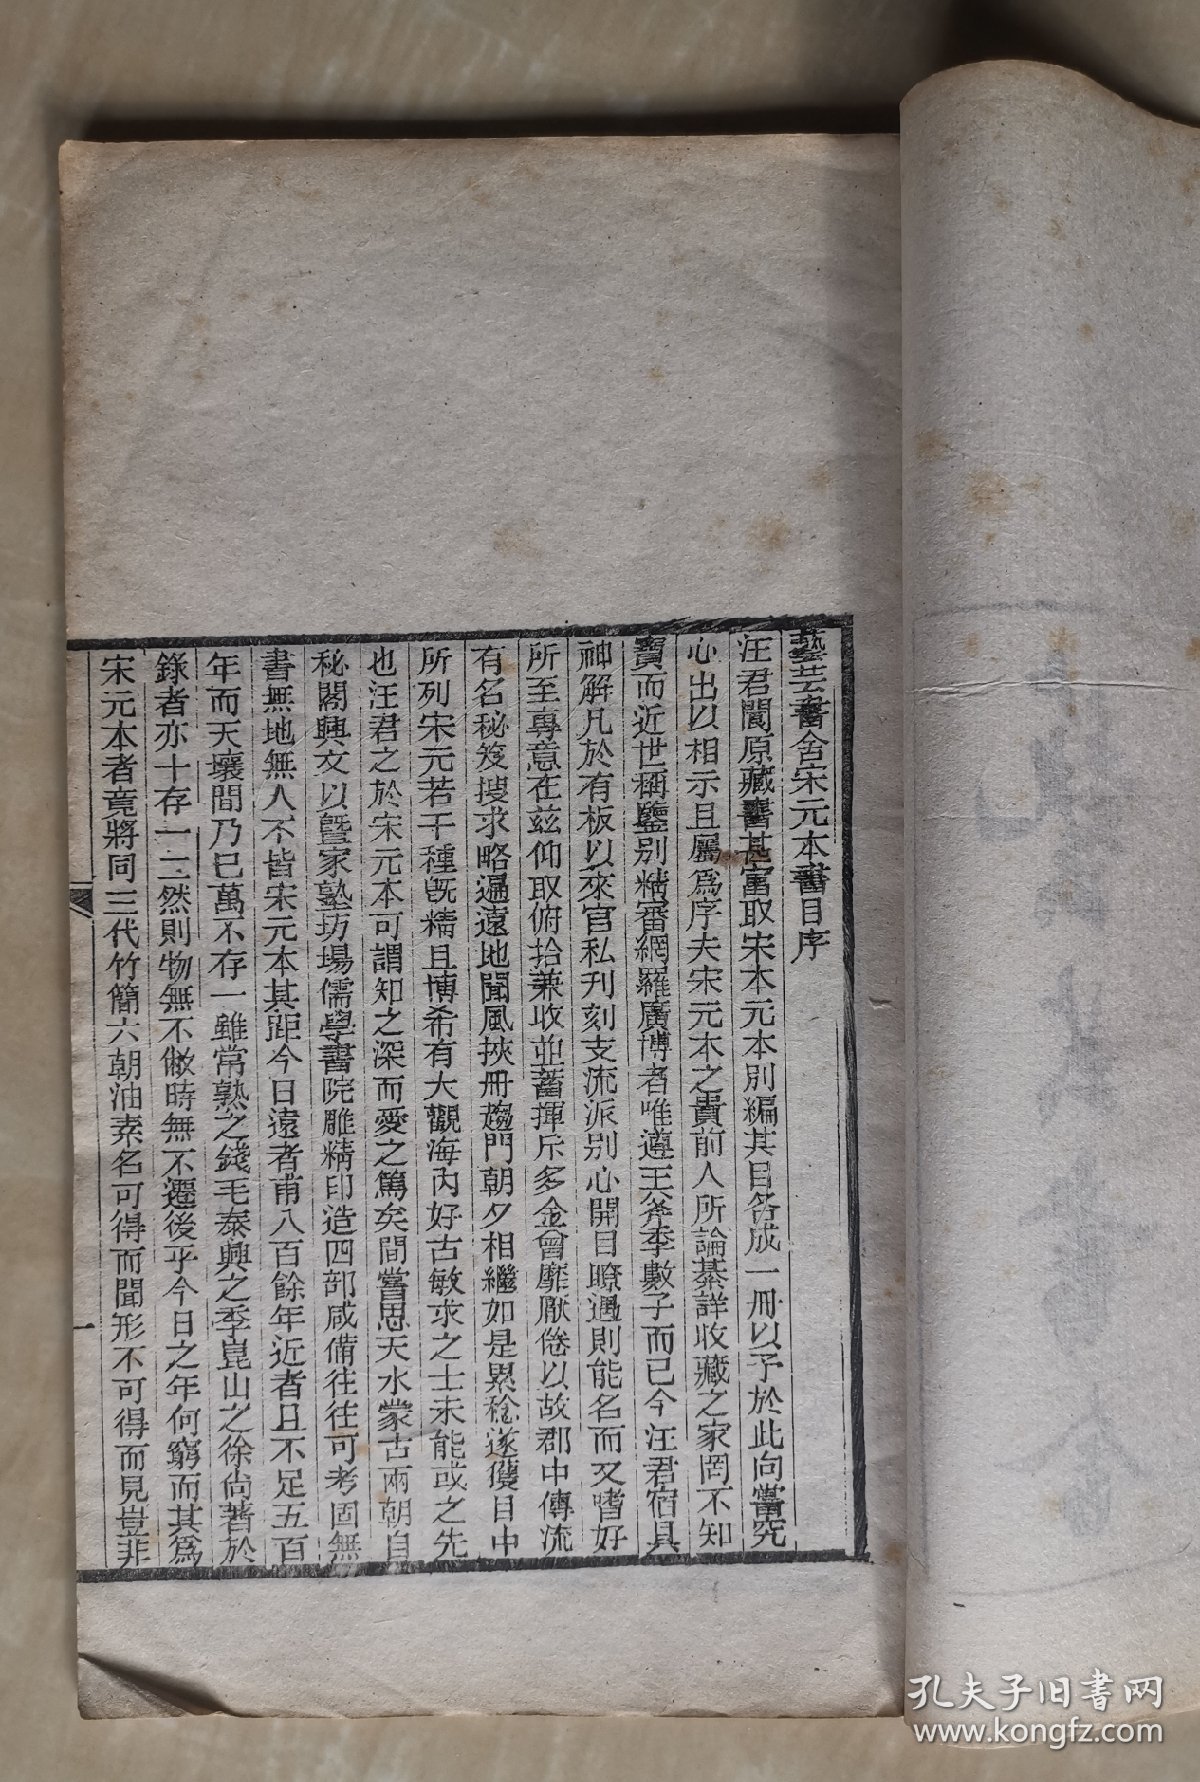 藝芸書舍宋元本書目序
汪君閬原藏書甚富取宋本元本別編其目各成一冊以予於此向嘗究
心出以相示且屬爲序夫宋元本之貴前人所論綦詳收藏之家罔不知
寶而近世稱鑒别精審網羅廣博者唯遵王斧季數子而已今汪君宿具
神解凡於有板以來官私刊刻支流派别心開目瞭遇則能名而又嗜好
所至專意在兹仰取俯拾兼收並蓄揮斥多金曾靡厭倦以故郡中傳流
有名秘笈搜求略遍遠地聞風挾冊趨門朝夕相繼如是累稔遂獲目中
所列宋元若干種旣精且博希有大觀海內好古敏求之士未能或之先
也汪君之於宋元本可謂知之深而愛之篤矣間嘗思天水蒙古兩朝自
秘閣興文以曁家塾坊場儒學書院雕精印造四部咸備往往可考固無
書無地無人不皆宋元本其距今日遠者甫八百餘年近者且不足五百
年而天壤間乃已萬不存一雖常熟之錢毛泰興之季崑山之徐尙著於
錄者亦十存一二然則物無不敝時無不遷後乎今日之年何窮而其爲
宋元本者竟將同三代竹簡六朝油素名可得而聞形不可得而見豈非
一
孔夫子旧書网
www.kongfz.com